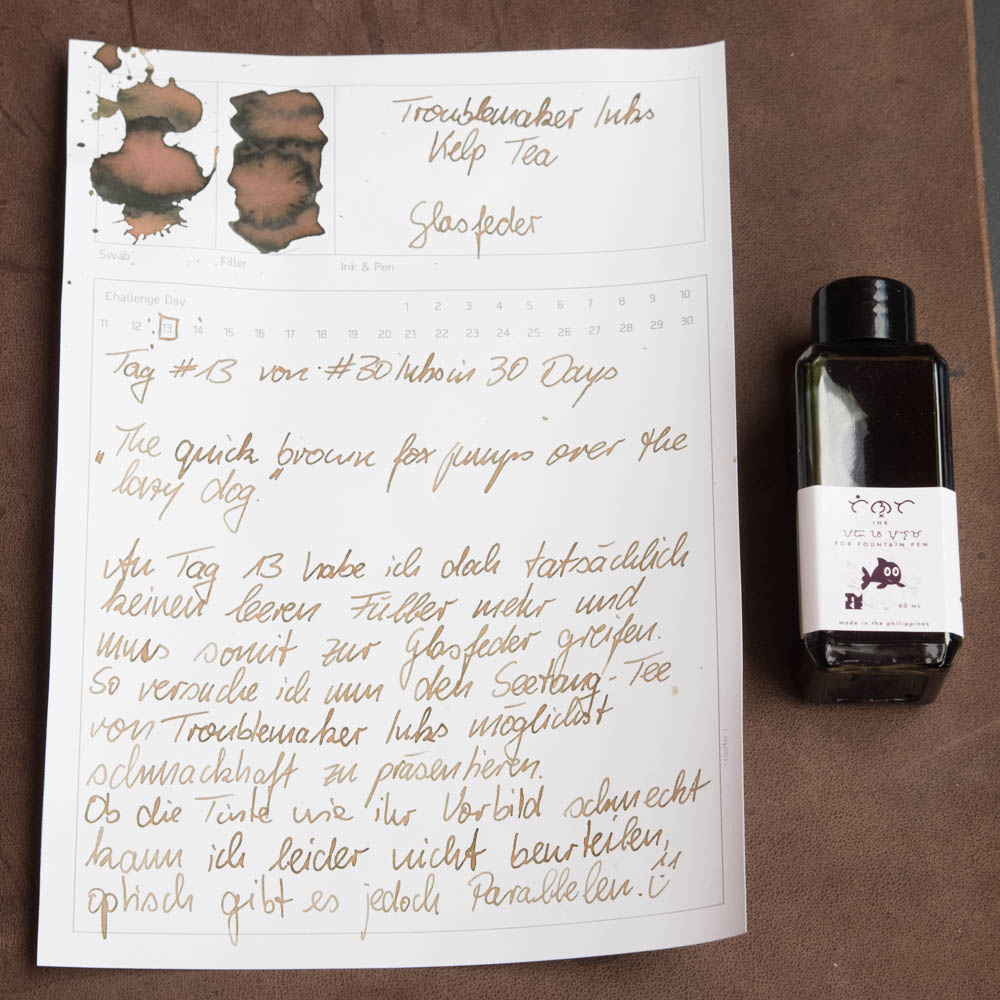 Troublemaker Inks
Kelp Tea
Glasfeder
Swab
Filler
Ink & Pen
Challenge Day
1 2 3 4 5 6 7 8 9 10
11 12 13 14 15 16 17 18 19 20 21 22 23 24 25 26 27 28 29 30
Tag #13 von #30 Inks in 30 Days
„The quick brown fox jumps over the
lazy dog."
An Tag 13 habe ich doch tatsächlich
keinen leeren Füller mehr und
muss somit zur Glasfeder greifen.
So versuche ich nun den Seetang-Tee
von Troublemaker Inks möglichst
schmackhaft zu präsentieren.
Ob die Tinte wie ihr Vorbild schmeckt
kann ich leider nicht beurteilen,
optisch gibt es jedoch Parallelen.
INK
FOR FOUNTAIN PEN
60 mL
made in the philippines